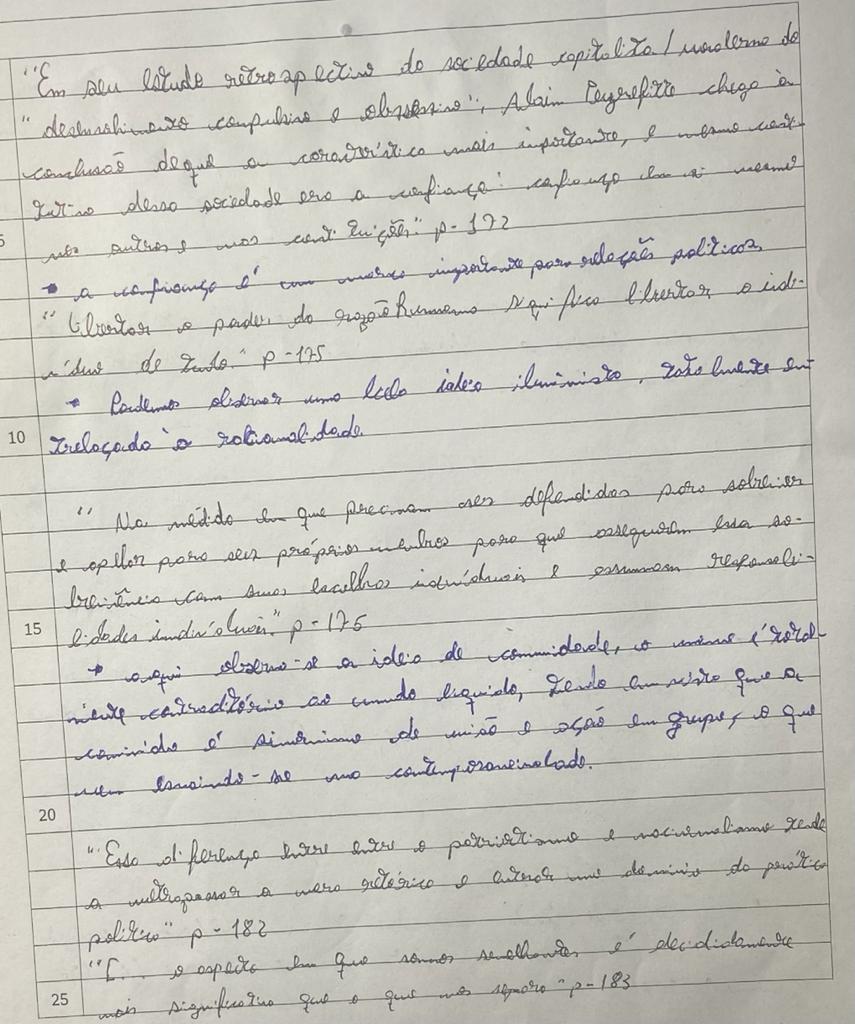 "Em seu estudo retrospectivo da sociedade capitalista/moderna do
"desenvolvimento compulsivo e obsessivo", Alain Peyrefitte chega à
conclusão de que a característica mais importante, e mesmo consti-
tutiva dessa sociedade era a confiança: confiança em si mesmo
5 nos outros e nas instituições." p-172
• a confiança é um marco importante para relações políticas.
"Libertar o poder da razão humana significa libertar o indi-
víduo de tudo." p-175
• Podemos observar uma ideia iluminista, totalmente en-
10 trelaçada à racionalidade.
"Na medida em que precisam ser defendidas para sobreviver
e apellar para seus próprios membros para que assegurem essa so-
brevivência com suas escolhas individuais e assumam responsabi-
15 lidades individuais." p-175
• aqui observa-se a ideia de comunidade, a mesma é total-
mente contraditória ao mundo líquido, tendo em vista que a
é sinônimo de união e ação em grupo, o que
vem esvaindo-se na contemporaneidade.
20
"Essa diferença entre entre o patriotismo e nacionalismo tende
a ultrapassar a mera retórica e entrar no domínio da prática
política" p-182
"[... o aspecto em que somos semelhantes é decididamente
25 mais significativo que o que nos separa" p-183